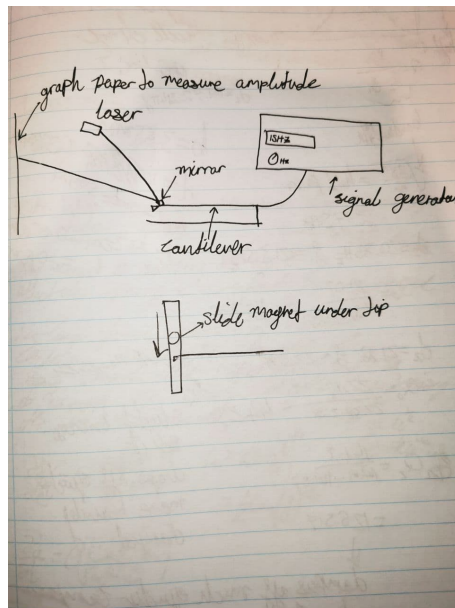 graph paper to measure amplitude
laser
15HZ
Hz
mirror
signal generator
cantilever
slide magnet under tip